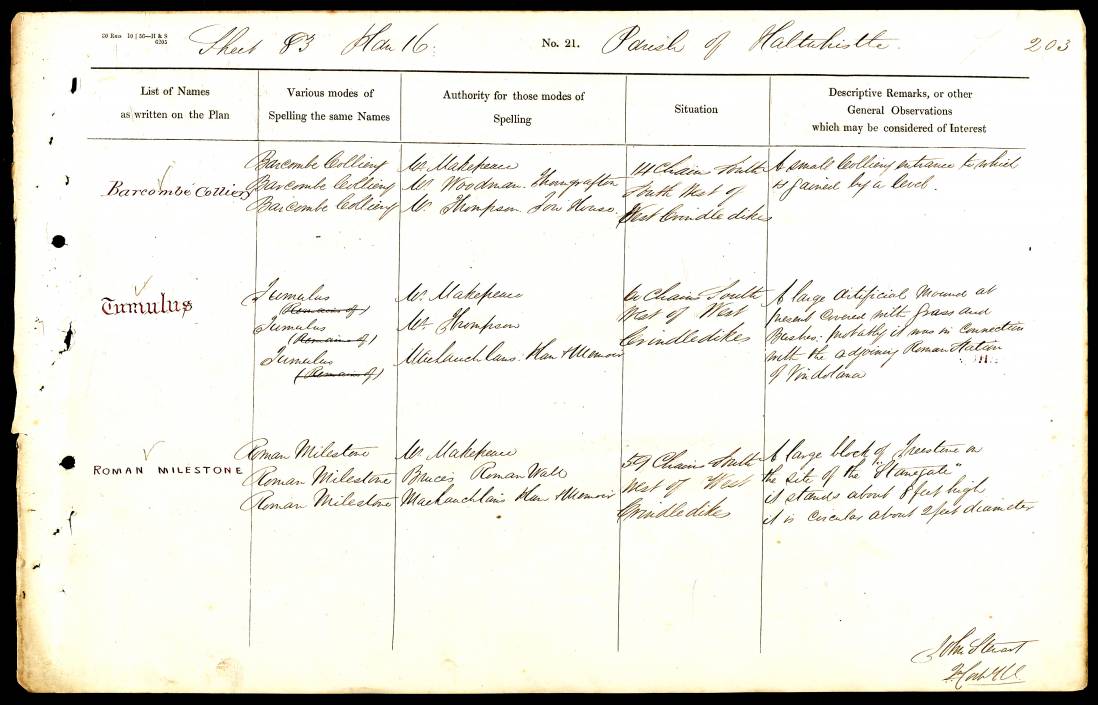 30 Rms 10 | 56—H & S
6205
Sheet 83 Plan 16. No. 21. Parish of Haltwhistle. 203
List of Names
as written on the Plan
Various modes of
Spelling the same Names
Authority for those modes of
Spelling
Situation
Descriptive Remarks, or other
General Observations
which may be considered of Interest
Barcombe Colliery
Barcombe Colliery
Barcombe Colliery
Barcombe Colliery
Mr. Makepeace
Mr. Woodman. Thorngrafton
Mr. Thompson
14 Chains South
South West of
West Crindledikes
A small Colliery entrance to which
is gained by a level.
Tumulus
Tumulus
(Remains of)
Tumulus
(Remains of)
Tumulus
(Remains of)
Mr. Makepeace
Mr. Thompson
Maclauchlans Plan & Memoir
60 Chains South
West of West
Crindledikes
A large Artificial Mound at
present Covered with Grass and
Bushes: probably it was in connection
with the adjoining Roman Station
of Vindolana
ROMAN MILESTONE
Roman Milestone
Roman Milestone
Roman Milestone
Mr. Makepeace
Bruces Roman Wall
Maclauchlans Plan & Memoir
59 Chains South
West of West
Crindledikes
A large block of Freestone on
the site of the "Stanegate"
it stands about 8 feet high
it is circular about 2 feet diameter
John Stewart